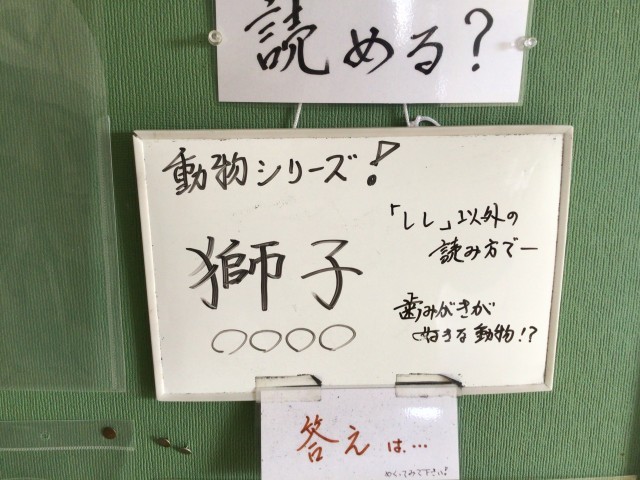 読める?
動物シリーズ!
「しし」以外の
読み方でー
獅子
○○○○
歯みがきが
できる動物!?
答えは…
めくってみて下さい!